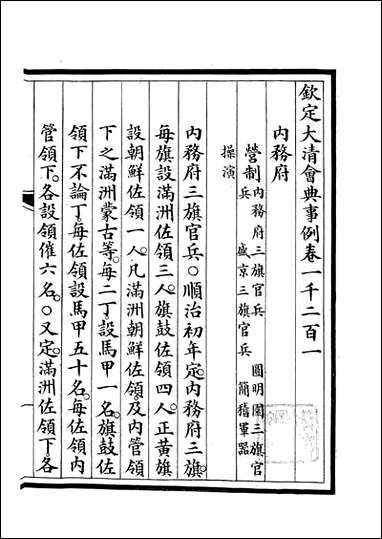 欽定大清會典事例卷一千二百一
內務府
營制 內務府三旗官兵 圓明園三旗官
兵 盛京三旗官兵 簡稽軍器
操演
內務府三旗官兵○順治初年定。內務府三旗。
每旗設滿洲佐領三人。旗鼓佐領四人。正黃旗
設朝鮮佐領一人。凡滿洲朝鮮佐領。及內管領
下之滿洲蒙古等。每二丁設馬甲一名。旗鼓佐
領下不論丁。每佐領設馬甲五十名。每佐領內
管領下。各設領催六名。○又定。滿洲佐領下。各